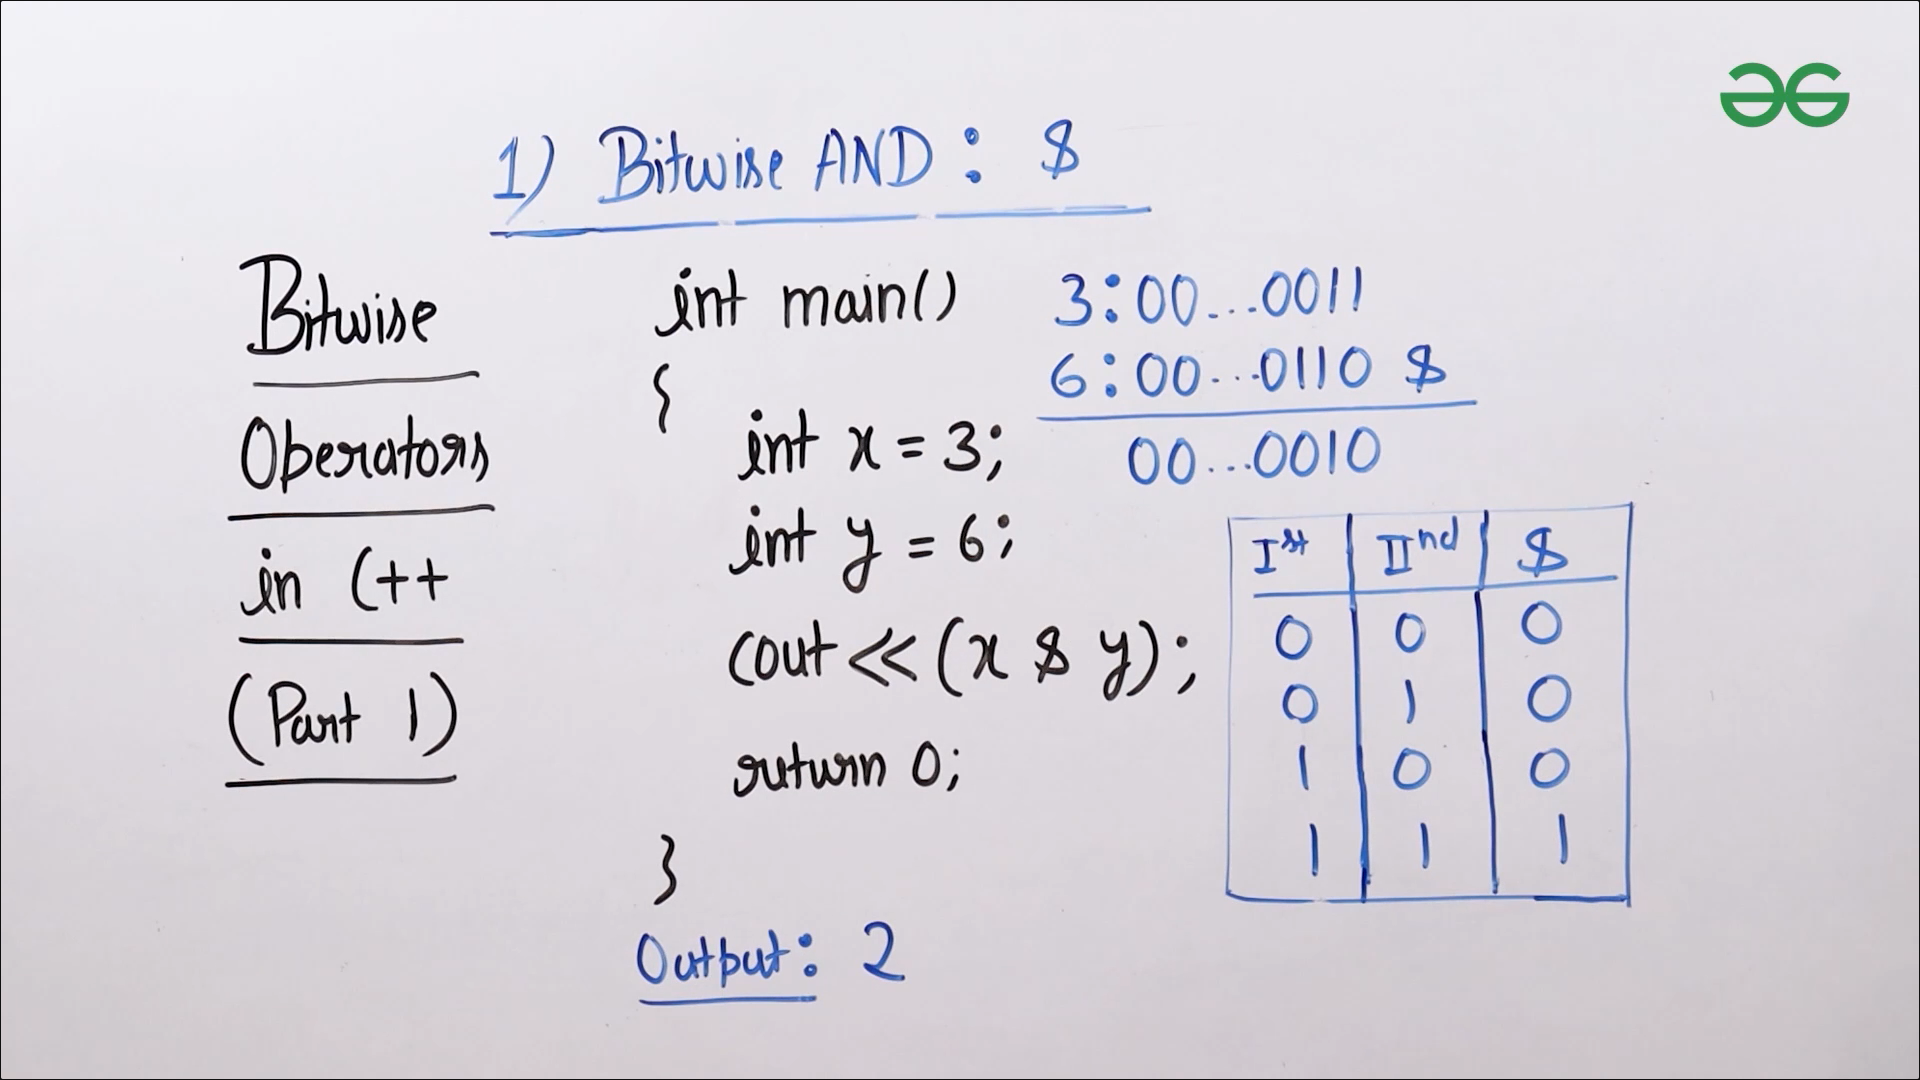 1) Bitwise AND : &
Bitwise
Operators
in C++
(Part 1)
int main()
{
int x = 3;
int y = 6;
cout << (x & y);
return 0;
}
Output: 2
3:00...0011
6:00...0110 &
00...0010
Ist IInd &
0 0 0
0 1 0
1 0 0
1 1 1